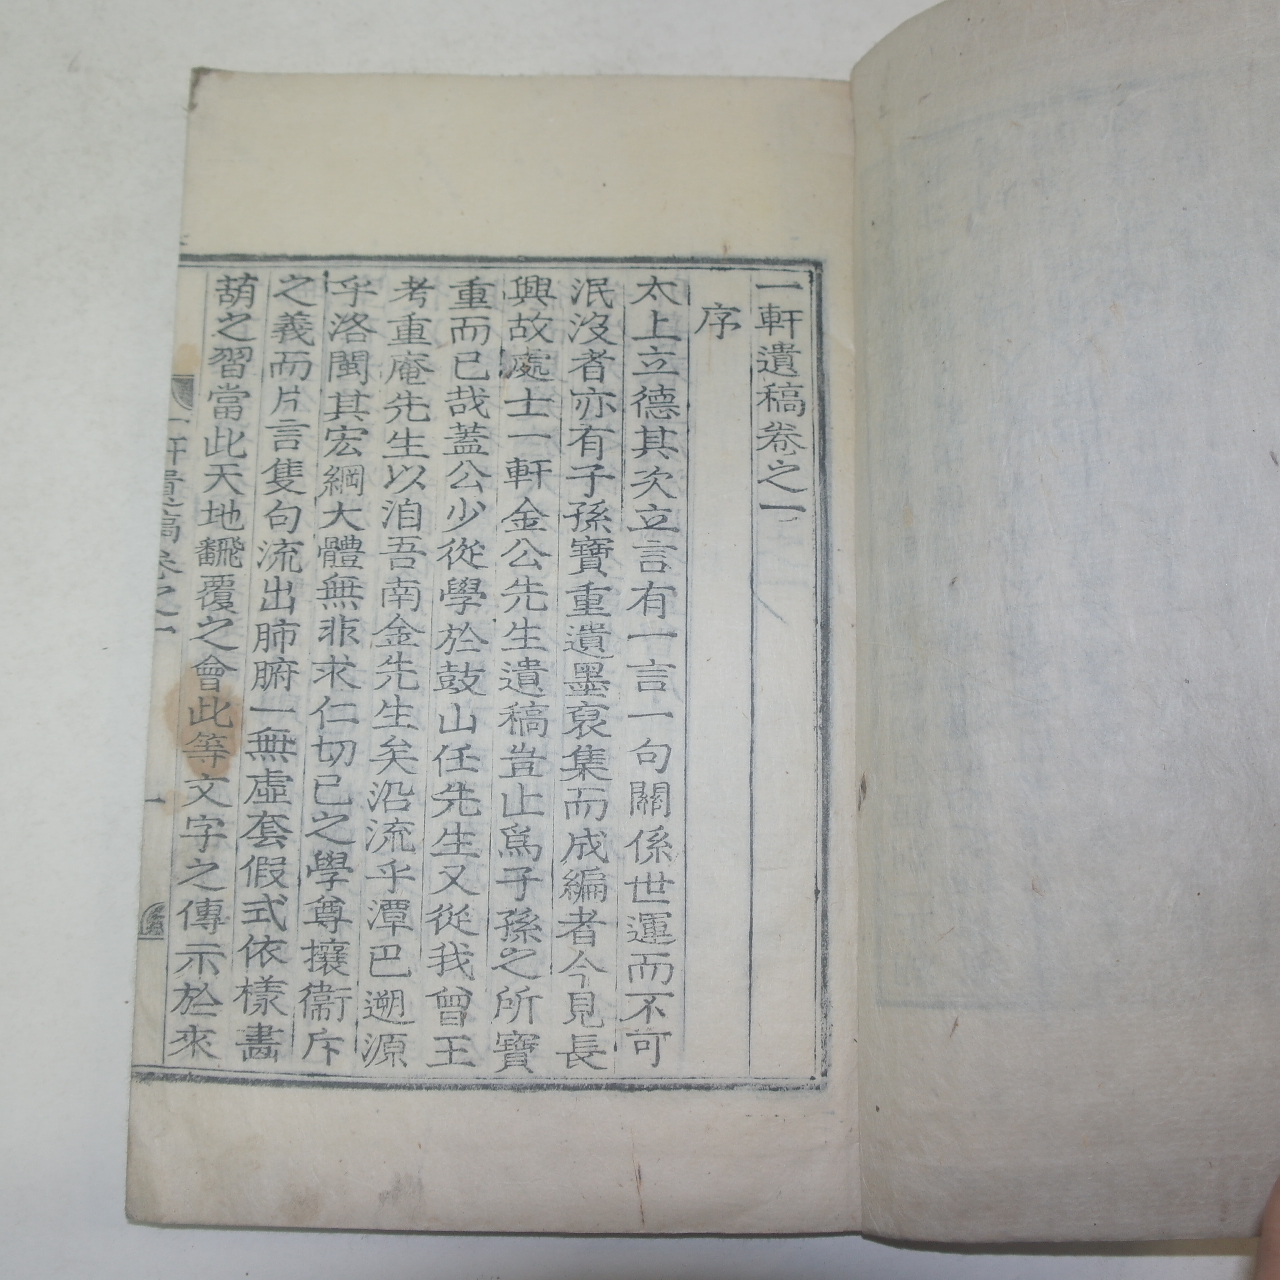 一軒遺稿卷之一
序
太上立德其次立言有一言一句關係世運而不可
泯沒者亦有子孫寶重遺墨裒集而成編者今見長
興故處士一軒金公先生遺稿豈止爲子孫之所寶
重而已哉蓋公少從學於鼓山任先生又從我曾王
考重庵先生以洎吾南金先生矣沿流乎潭巴遡源
乎洛閩其宏綱大體無非求仁切己之學尊攘衞斥
之義而片言隻句流出肺腑一無虛套假式依樣畵
葫之習當此天地飜覆之會此等文字之傳示於來
一軒遺稿卷之一
一